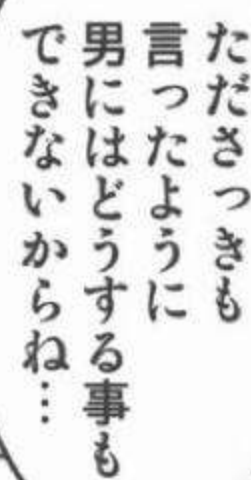 たださっきも
言ったように
男にはどうする事も
できないからね…